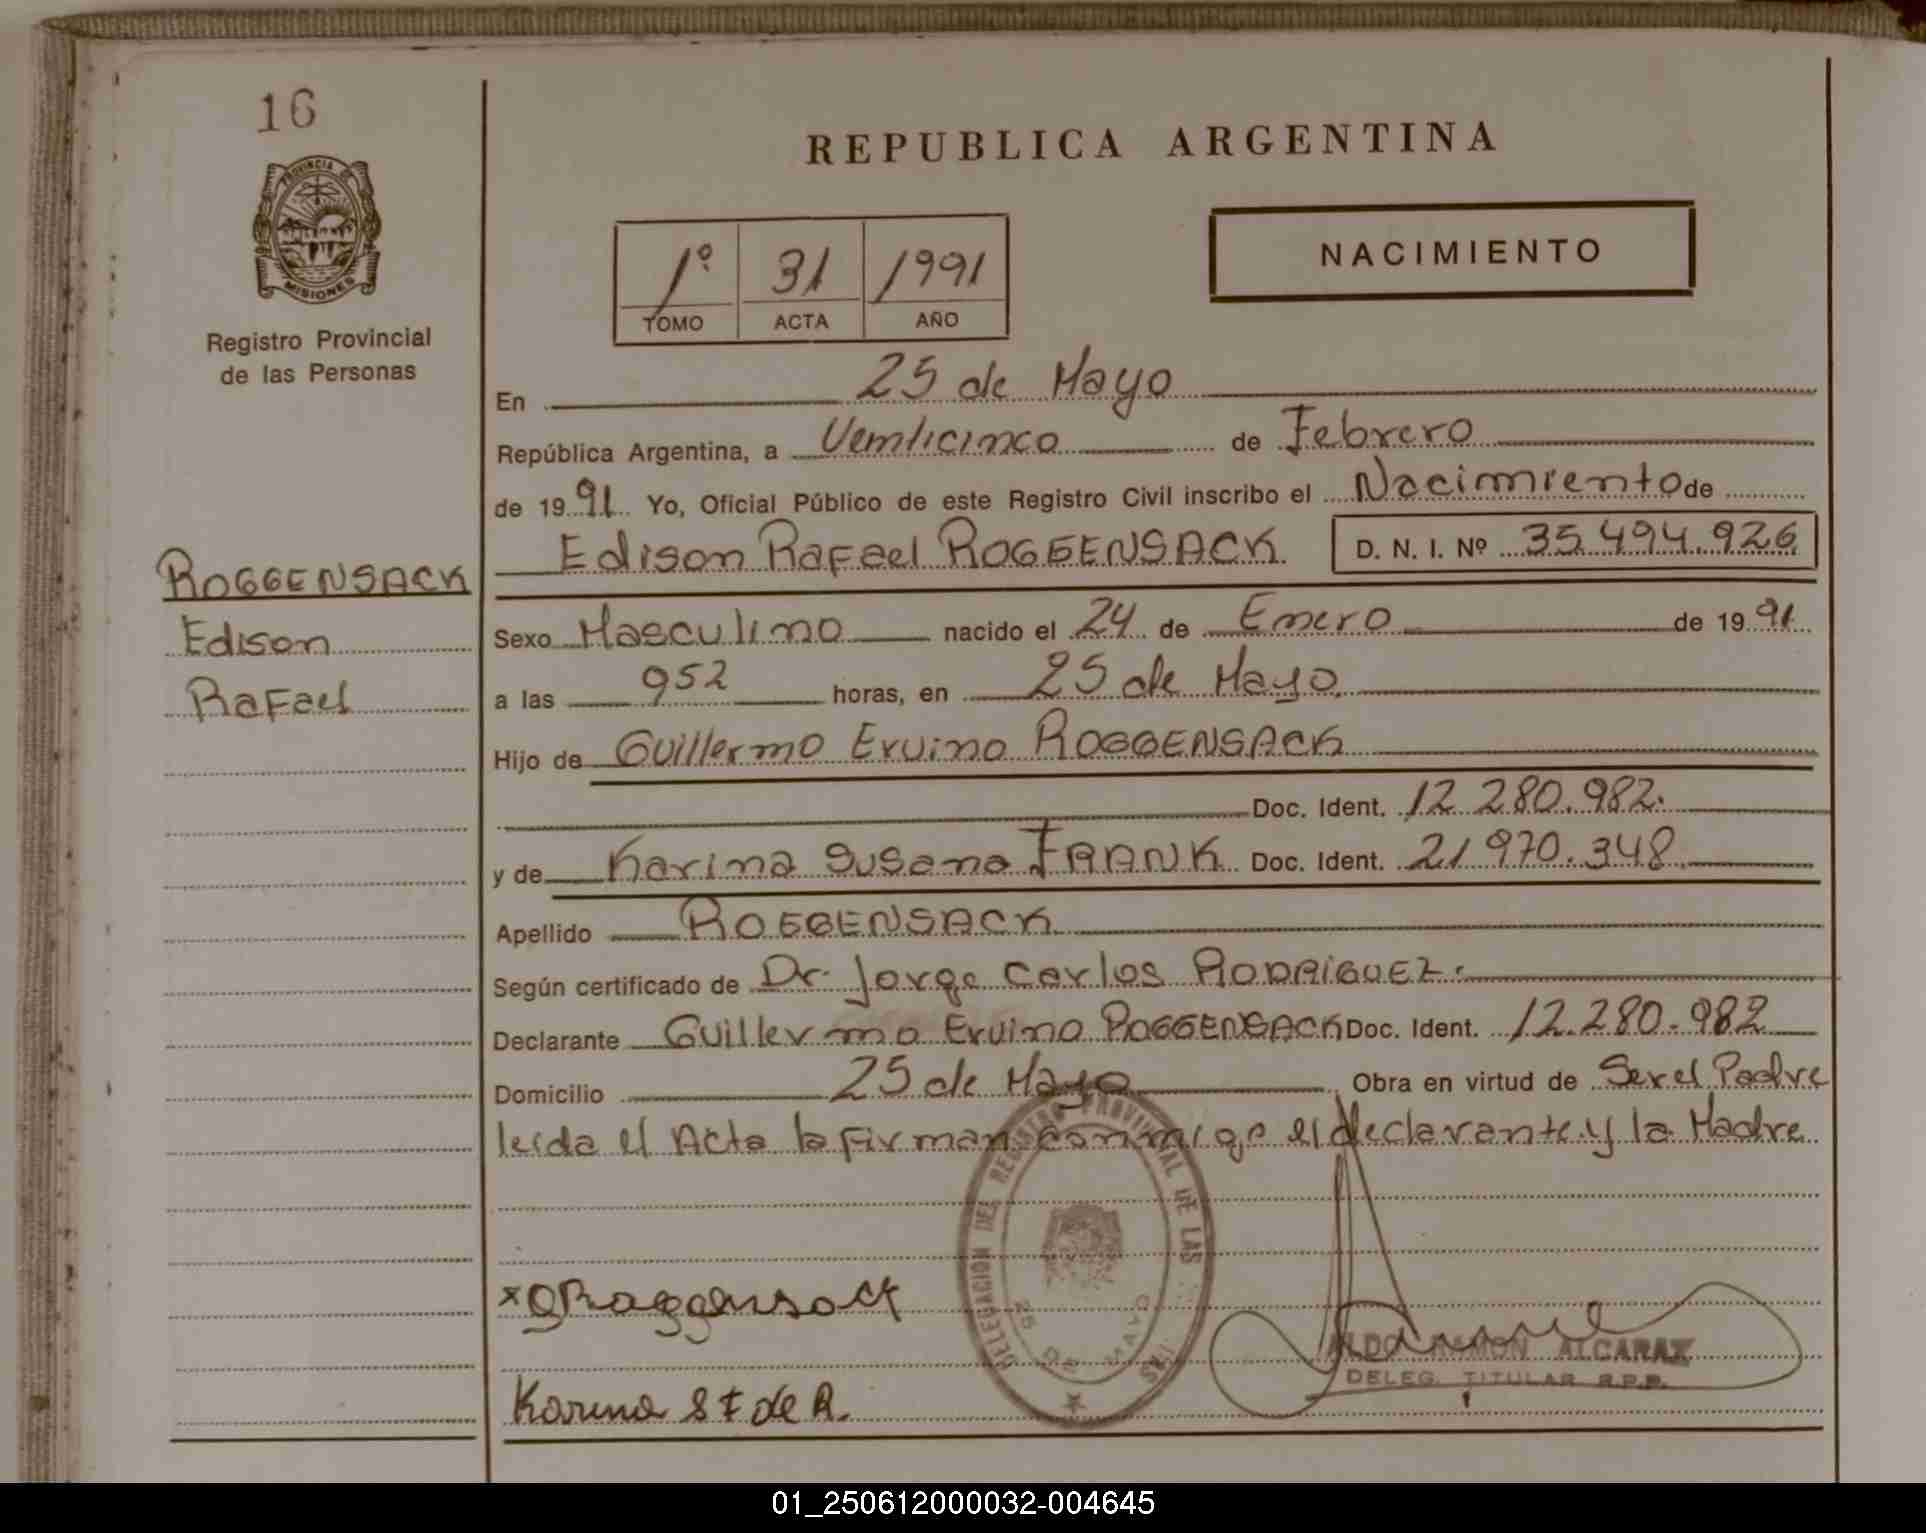 16
PROVINCIA DE
MISIONES
Registro Provincial
de las Personas
ROGGENSACK
Edison
Rafael
REPUBLICA ARGENTINA
1º 31 1991
TOMO ACTA AÑO
NACIMIENTO
En 25 de Mayo
República Argentina, a Veinticinco de Febrero
de 1991 Yo, Oficial Público de este Registro Civil inscribo el Nacimiento de
Edison Rafael ROGGENSACK D. N. I. Nº 35.494.926
Sexo Masculino nacido el 24 de Enero de 1991
a las 952 horas, en 25 de Mayo
Hijo de Guillermo Ervino ROGGENSACK
Doc. Ident. 12.280.982.
y de Karina Susana FRANK Doc. Ident. 21.970.348
Apellido ROGGENSACK
Según certificado de Dr. Jorge Carlos RODRIGUEZ.
Declarante Guillermo Ervino ROGGENSACK Doc. Ident. 12.280.982
Domicilio 25 de Mayo Obra en virtud de Ser el Padre
leida el Acta la firman conmigo el declarante y la Madre
DELEGACION DEL REGISTRO PROVINCIAL DE LAS
25 DE MAYO
x G Roggensack
Karina S F de R.
ALDO RAMON ALCARAZ
DELEG. TITULAR R.P.P.
01_250612000032-004645